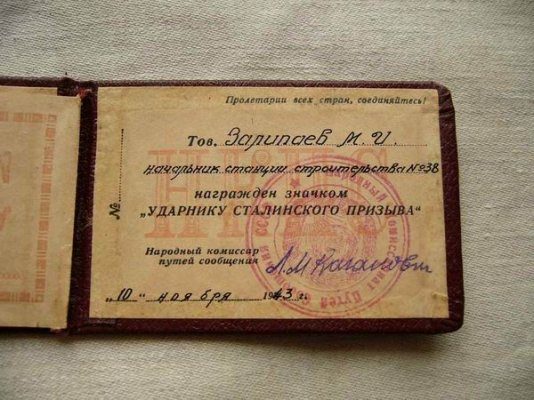 Пролетарии всех стран, соединяйтесь!
Тов. Зарипаев М. И.
начальник станции строительства №38
награжден значком
„УДАРНИКУ СТАЛИНСКОГО ПРИЗЫВА“
Народный комиссар
путей сообщения Л.М.Каганович
„10“ ноября 1943 г.
№